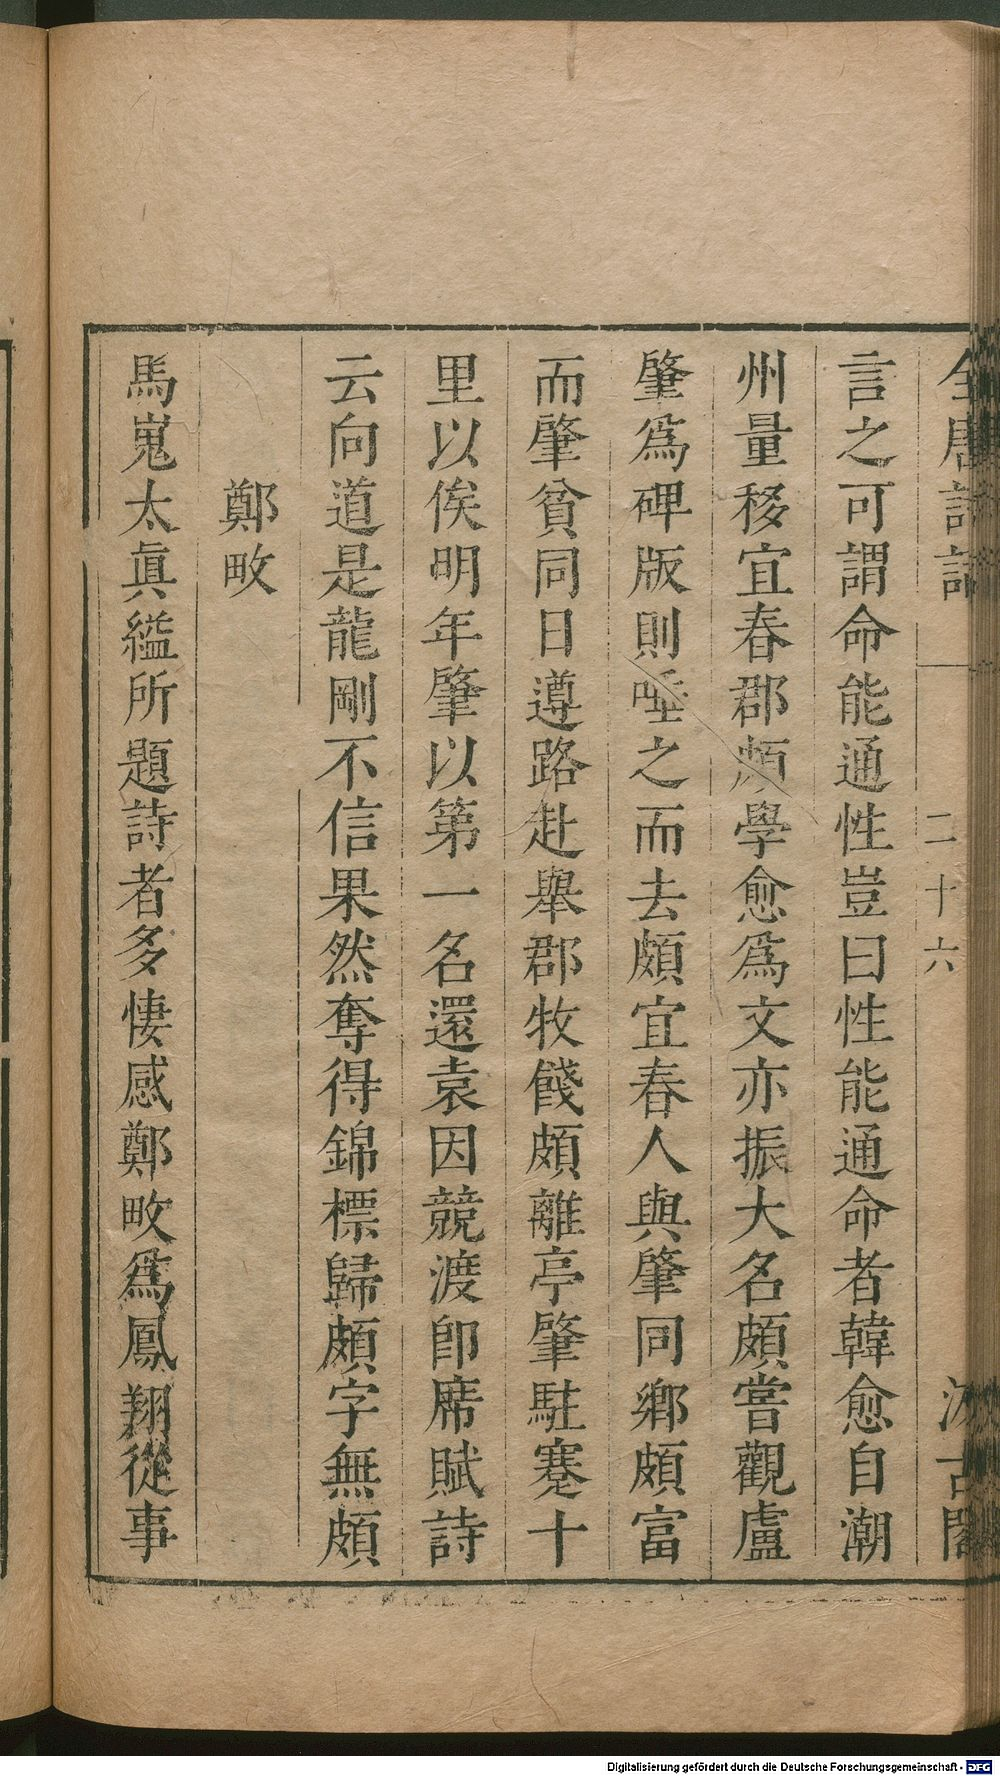 全唐詩話 二十六 汲古閣
言之可謂命能通性豈曰性能通命者韓愈自潮
州量移宜春郡頗學愈爲文亦振大名頗嘗觀盧
肇爲碑版則唾之而去頗宜春人與肇同鄉頗富
而肇貧同日遵路赴舉郡牧餞頗離亭肇駐蹇十
里以俟明年肇以第一名還袁因競渡卽席賦詩
云向道是龍剛不信果然奪得錦標歸頗字無頗
鄭畋
馬嵬太眞縊所題詩者多悽感鄭畋爲鳳翔從事
Digitalisierung gefördert durch die Deutsche Forschungsgemeinschaft - DFG